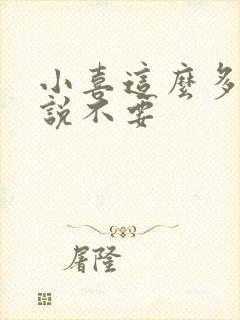 小喜這麼多
說不要
屠隆